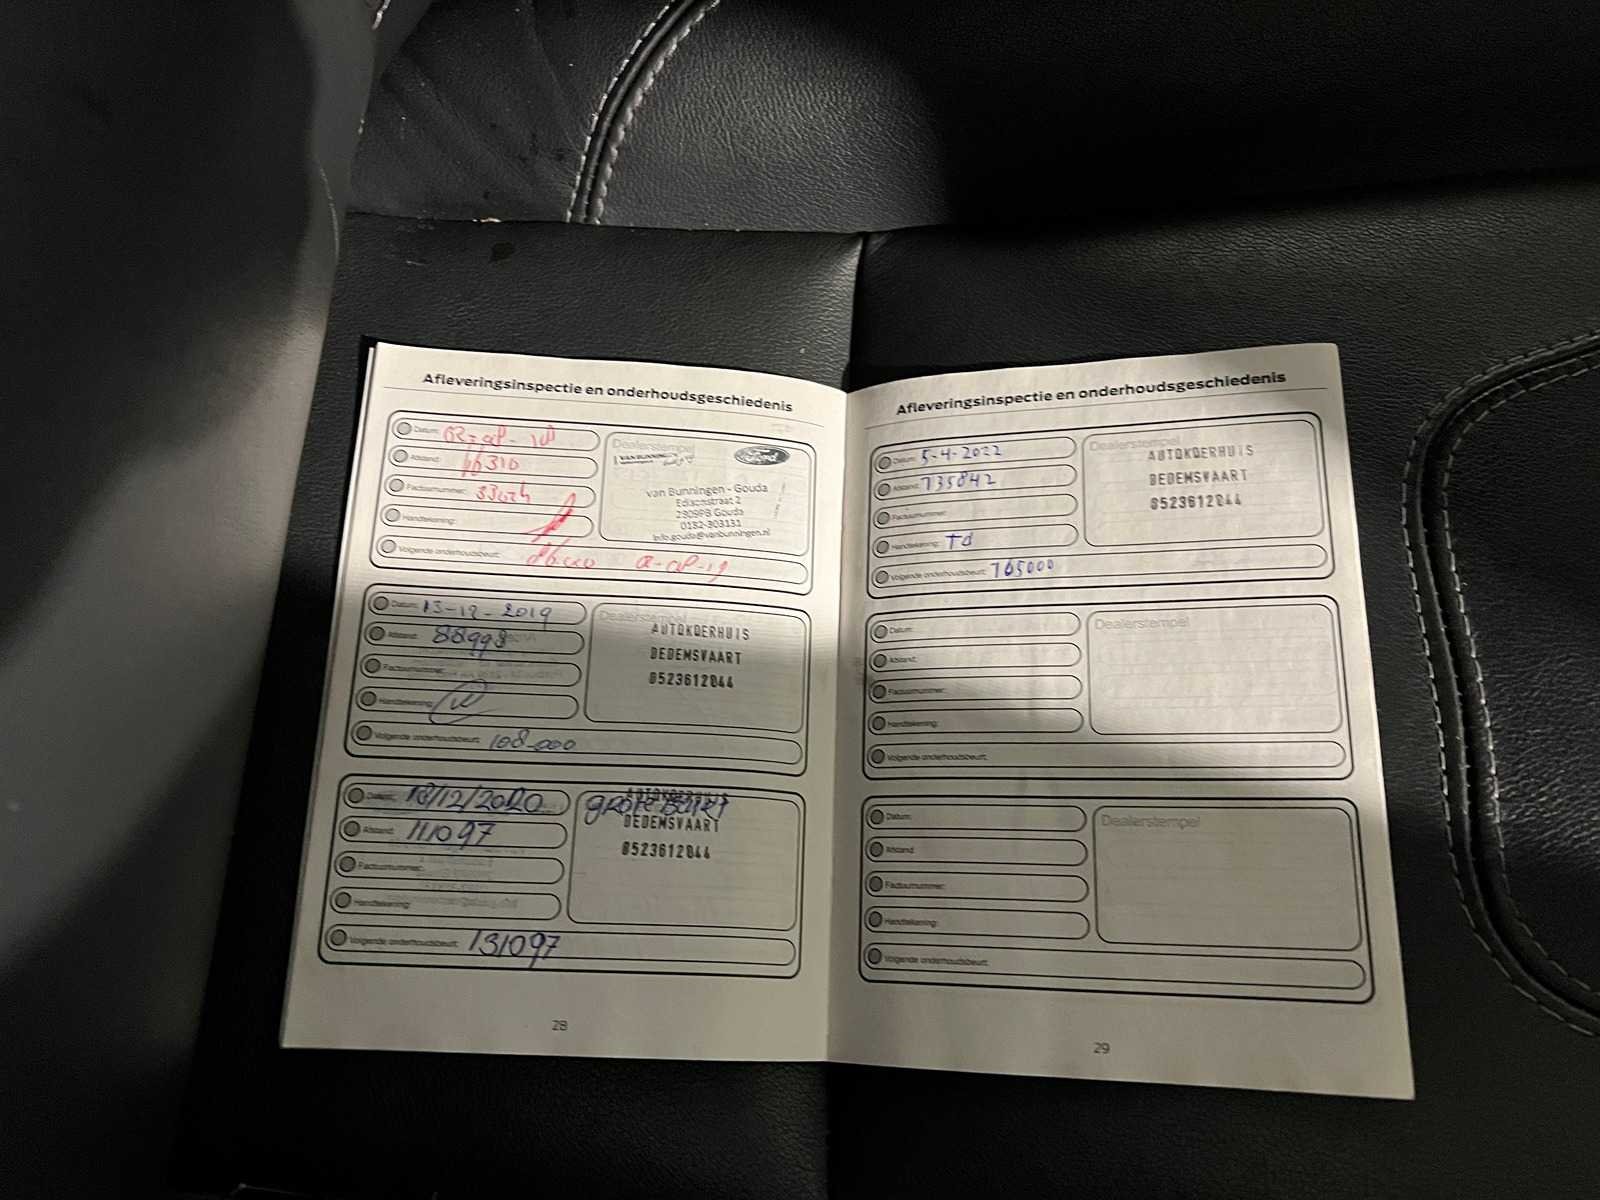 Afleveringsinspectie en onderhoudsgeschiedenis
Datum:
Afstand: 66310
Factuurnummer:
Handtekening:
Volgende onderhoudsbeurt:
Dealerstempel
VAN BUNNINGEN
Ford
van Bunningen - Gouda
Edisonstraat 2
2809PB Gouda
0182-303131
info.gouda@vanbunningen.nl
Datum: 13-12-2019
Afstand: 88998
Factuurnummer:
Handtekening:
Volgende onderhoudsbeurt: 108-000
Dealerstempel
AUTOKOERHUIS
DEDEMSVAART
0523612044
Datum: 18/12/2020
Afstand: 111097
Factuurnummer:
Handtekening:
Volgende onderhoudsbeurt: 131097
grote Beurt
AUTOKOERHUIS
DEDEMSVAART
0523612044
28
Afleveringsinspectie en onderhoudsgeschiedenis
Datum: 5-4-2022
Afstand: 135842
Factuurnummer:
Handtekening: Td
Volgende onderhoudsbeurt: 165000
Dealerstempel
AUTOKOERHUIS
DEDEMSVAART
0523612044
Datum:
Afstand:
Factuurnummer:
Handtekening:
Volgende onderhoudsbeurt:
Dealerstempel
Datum:
Afstand:
Factuurnummer:
Handtekening:
Volgende onderhoudsbeurt:
Dealerstempel
29